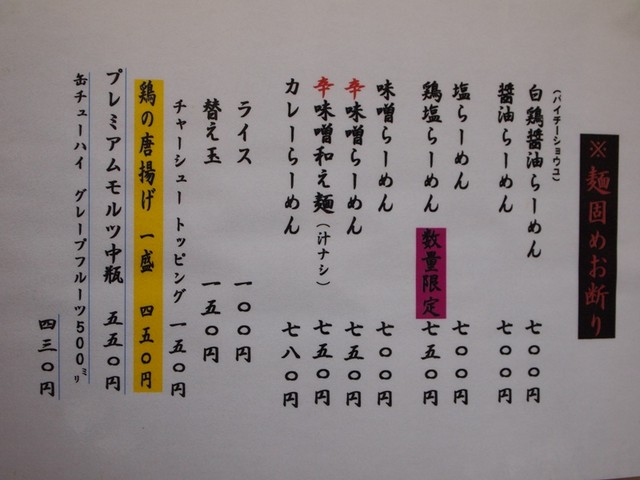 ※麺固めお断り
(パイチーショウユ)
白鶏醤油らーめん 七〇〇円
醤油らーめん 七〇〇円
塩らーめん 七〇〇円
鶏塩らーめん 数量限定 七五〇円
味噌らーめん 七〇〇円
辛味噌らーめん 七五〇円
辛味噌和え麺(汁ナシ) 七五〇円
カレーらーめん 七八〇円
ライス 一〇〇円
替え玉 一五〇円
チャーシュートッピング 一五〇円
鶏の唐揚げ 一盛 四五〇円
プレミアムモルツ中瓶 五五〇円
缶チューハイ グレープフルーツ500㍉
四三〇円